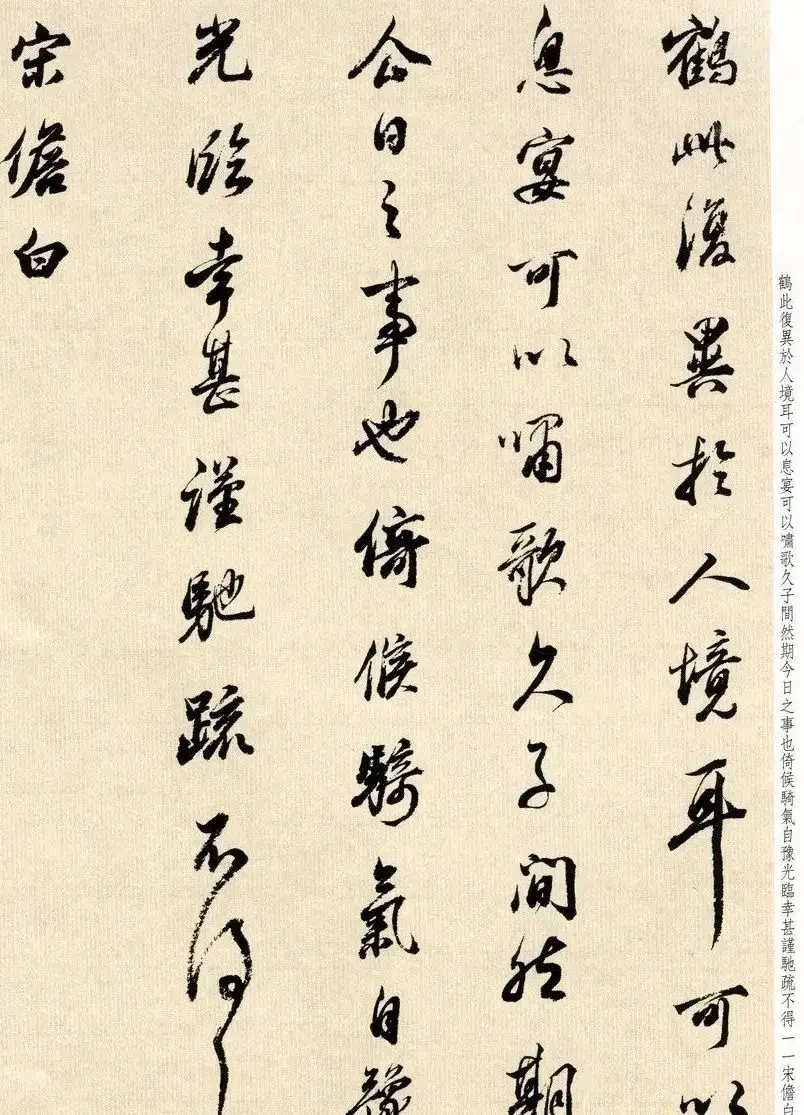 鶴此復異於人境耳可以
息宴可以嘯歌久子間然期
今日之事也倚候騎氣自豫
光臨幸甚謹馳疏不得
宋儋白
鶴此復異於人境耳可以息宴可以嘯歌久子間然期今日之事也倚候騎氣自豫光臨幸甚謹馳疏不得一一宋儋白